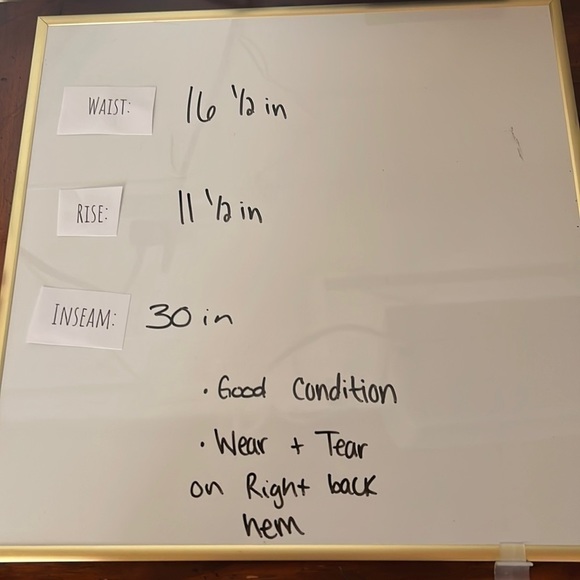 WAIST: 16 1/2 in
RISE: 11 1/2 in
INSEAM: 30 in
• Good Condition
• Wear + Tear
on Right back
hem